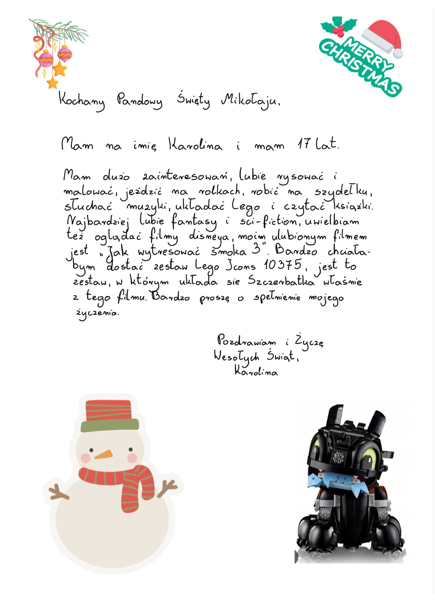 MERRY
CHRISTMAS
Kochany Pandowy Święty Mikołaju,
Mam na imię Karolina i mam 17 lat.
Mam dużo zainteresowań, lubie rysować i
malować, jeździć na rolkach, robić na szydełku,
słuchać muzyki, układać Lego i czytać książki.
Najbardziej lubie fantasy i sci-fiction, uwielbiam
też oglądać filmy disneya, moim ulubionym filmem
jest „Jak wytresować smoka 3". Bardzo chciała-
bym dostać zestaw Lego Icons 10375, jest to
zestaw, w którym układa sie Szczerbatka właśnie
z tego filmu. Bardzo proszę o spełnienie mojego
życzenia.
Pozdrawiam i Życzę
Wesołych Świąt,
Karolina